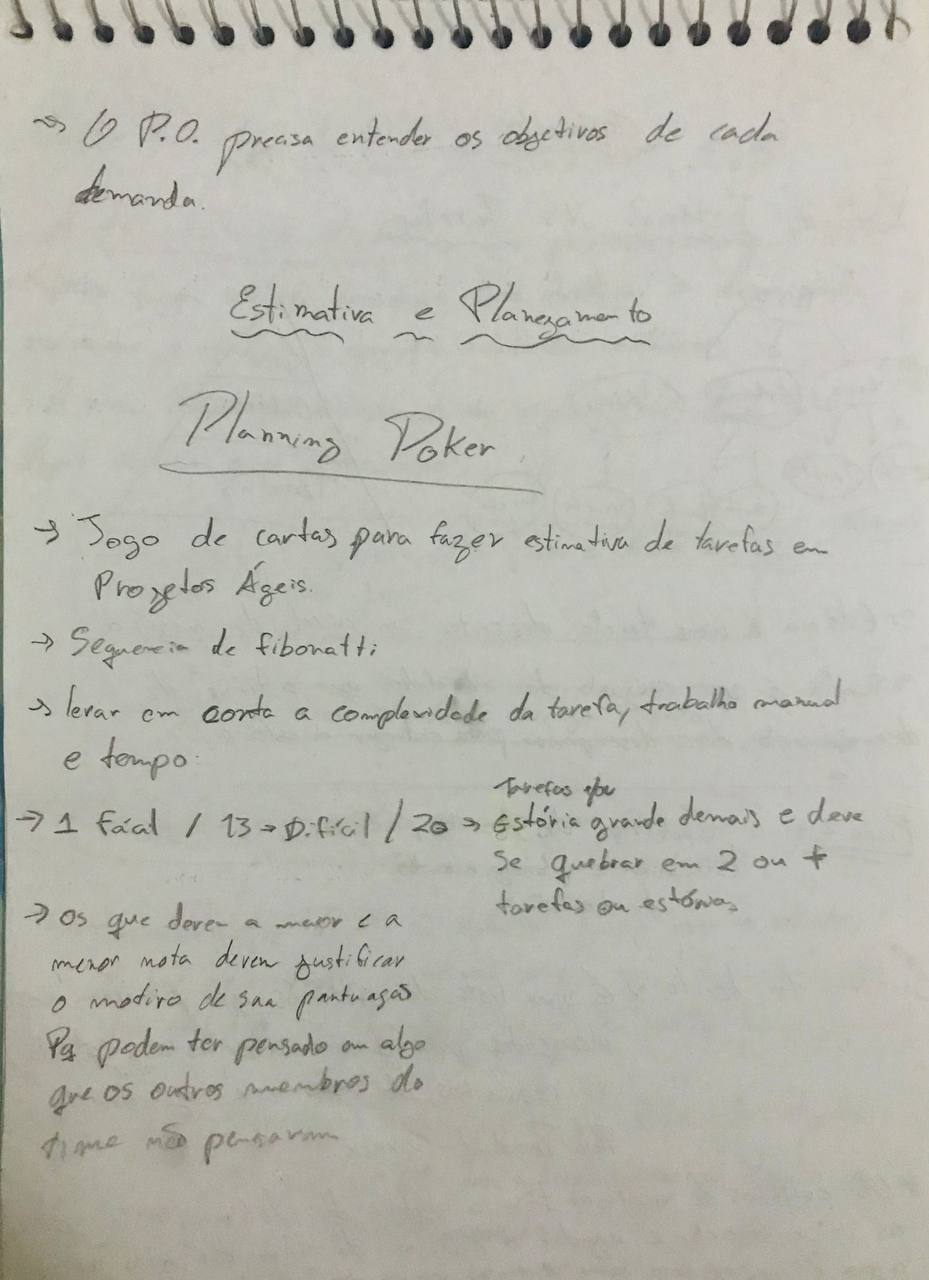 → O P.O. precisa entender os objetivos de cada
demanda.
Estimativa e Planejamento
Planning Poker
→ Jogo de cartas para fazer estimativa de tarefas em
Projetos Ágeis.
→ Sequencia de fibonatti
→ levar em conta a complexidade da tarefa, trabalho manual
e tempo.
Tarefas ou
→ 1 fácil / 13 → Difícil / 20 → Estória grande demais e deve
se quebrar em 2 ou +
tarefas ou estórias
→ Os que derem a maior e a
menor nota devem justificar
o motivo de sua pontuação
Pq podem ter pensado em algo
que os outros membros do
time não pensaram